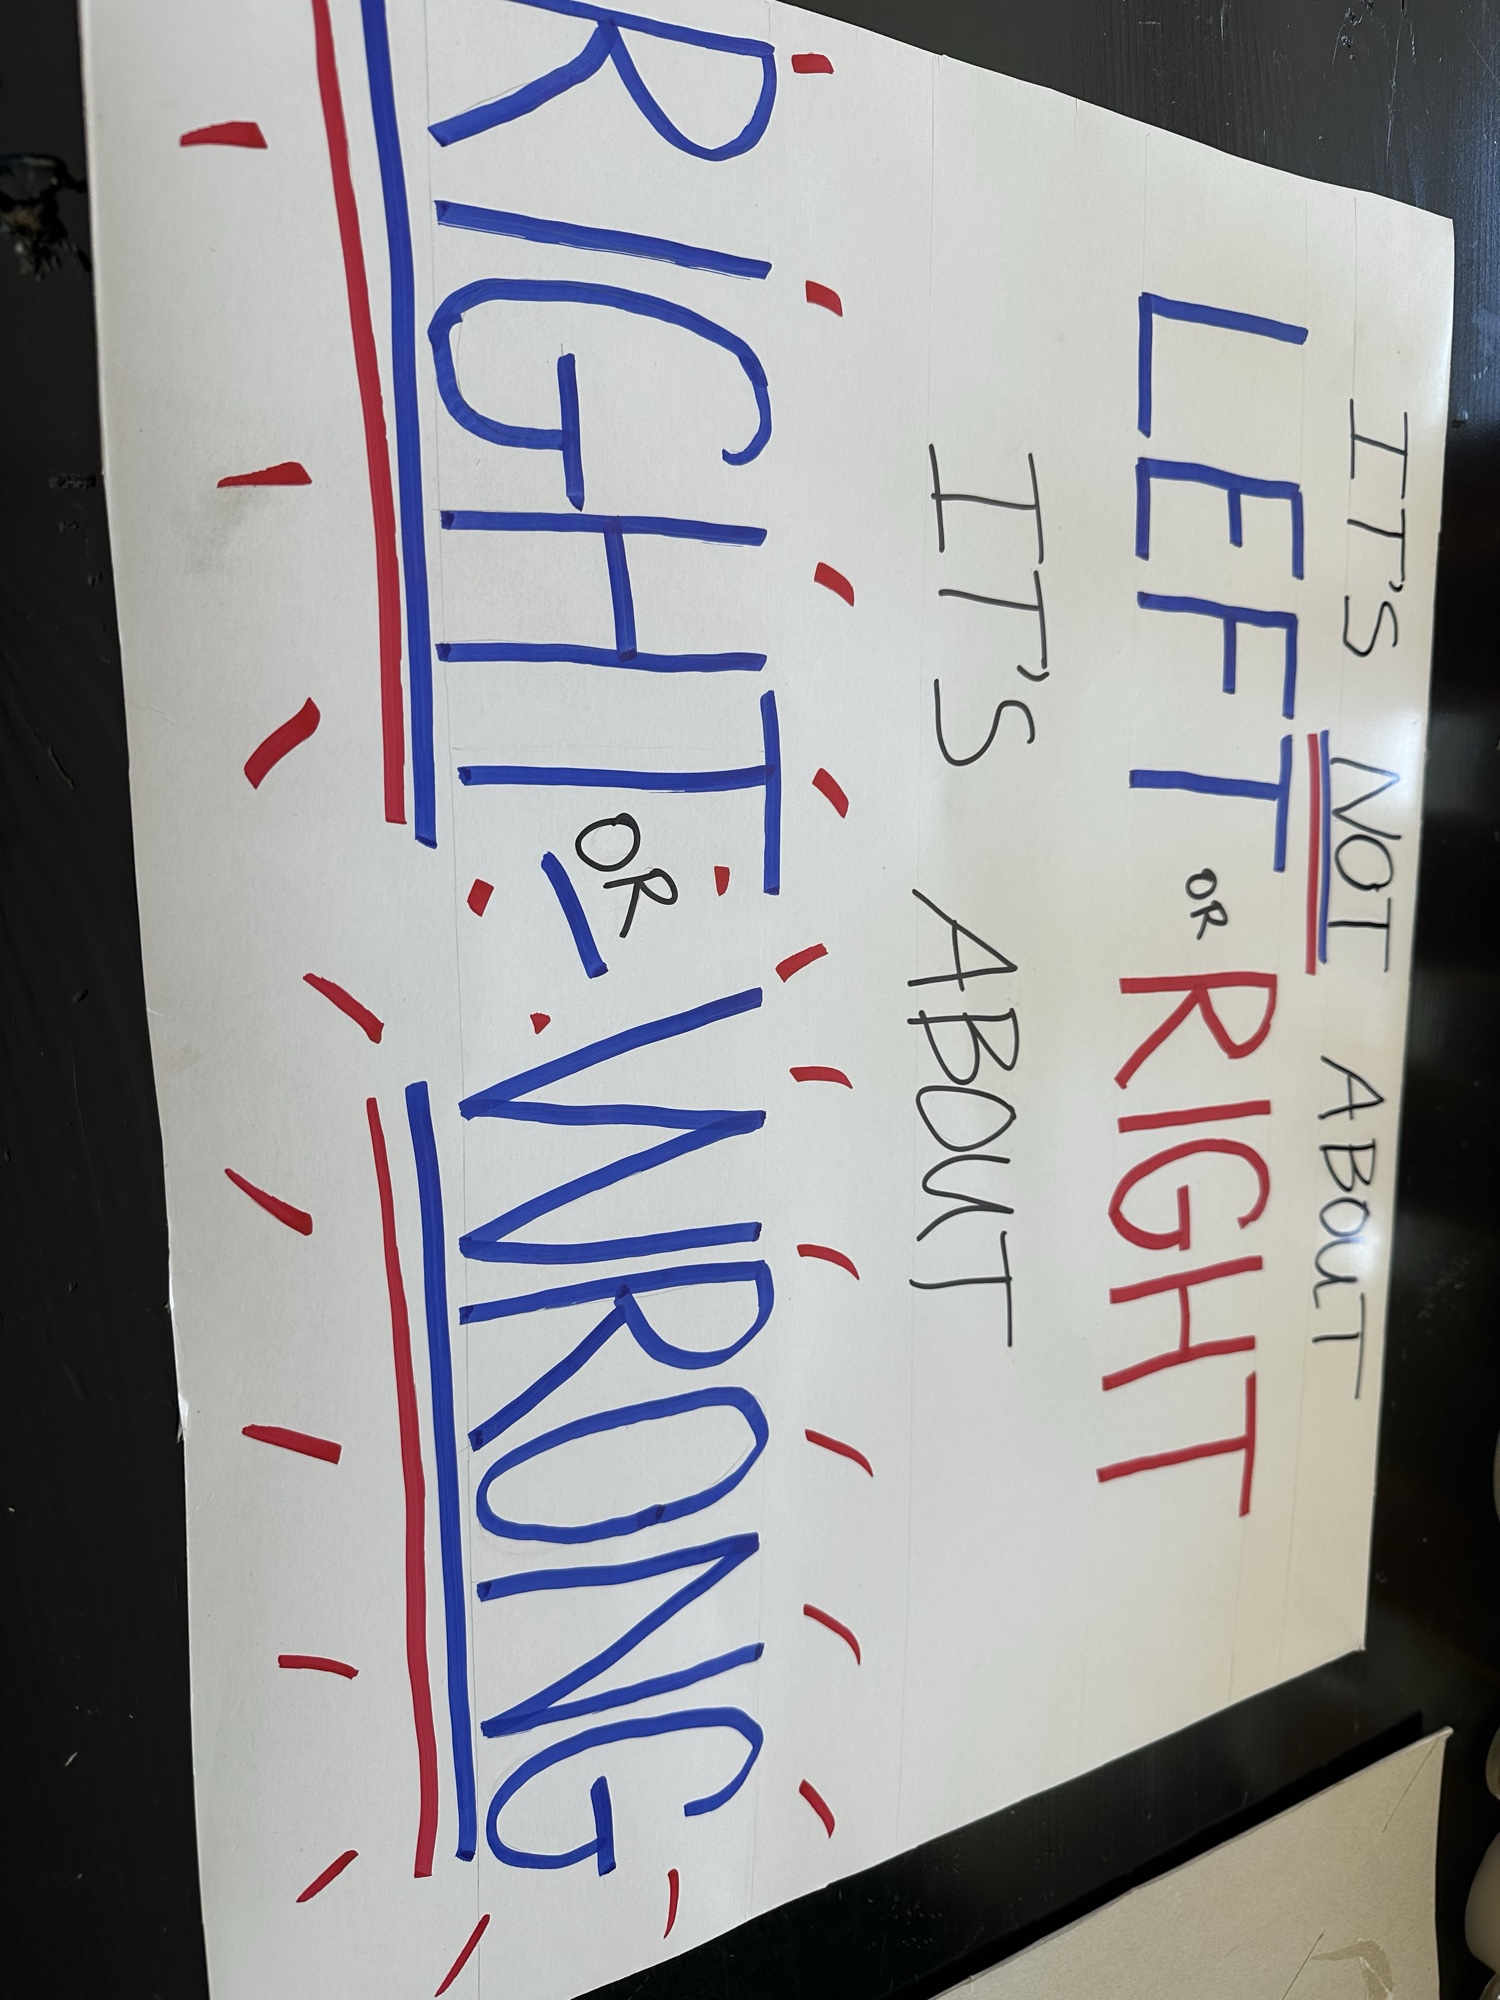 IT'S NOT ABOUT
LEFT OR RIGHT
IT'S ABOUT
RIGHT OR WRONG